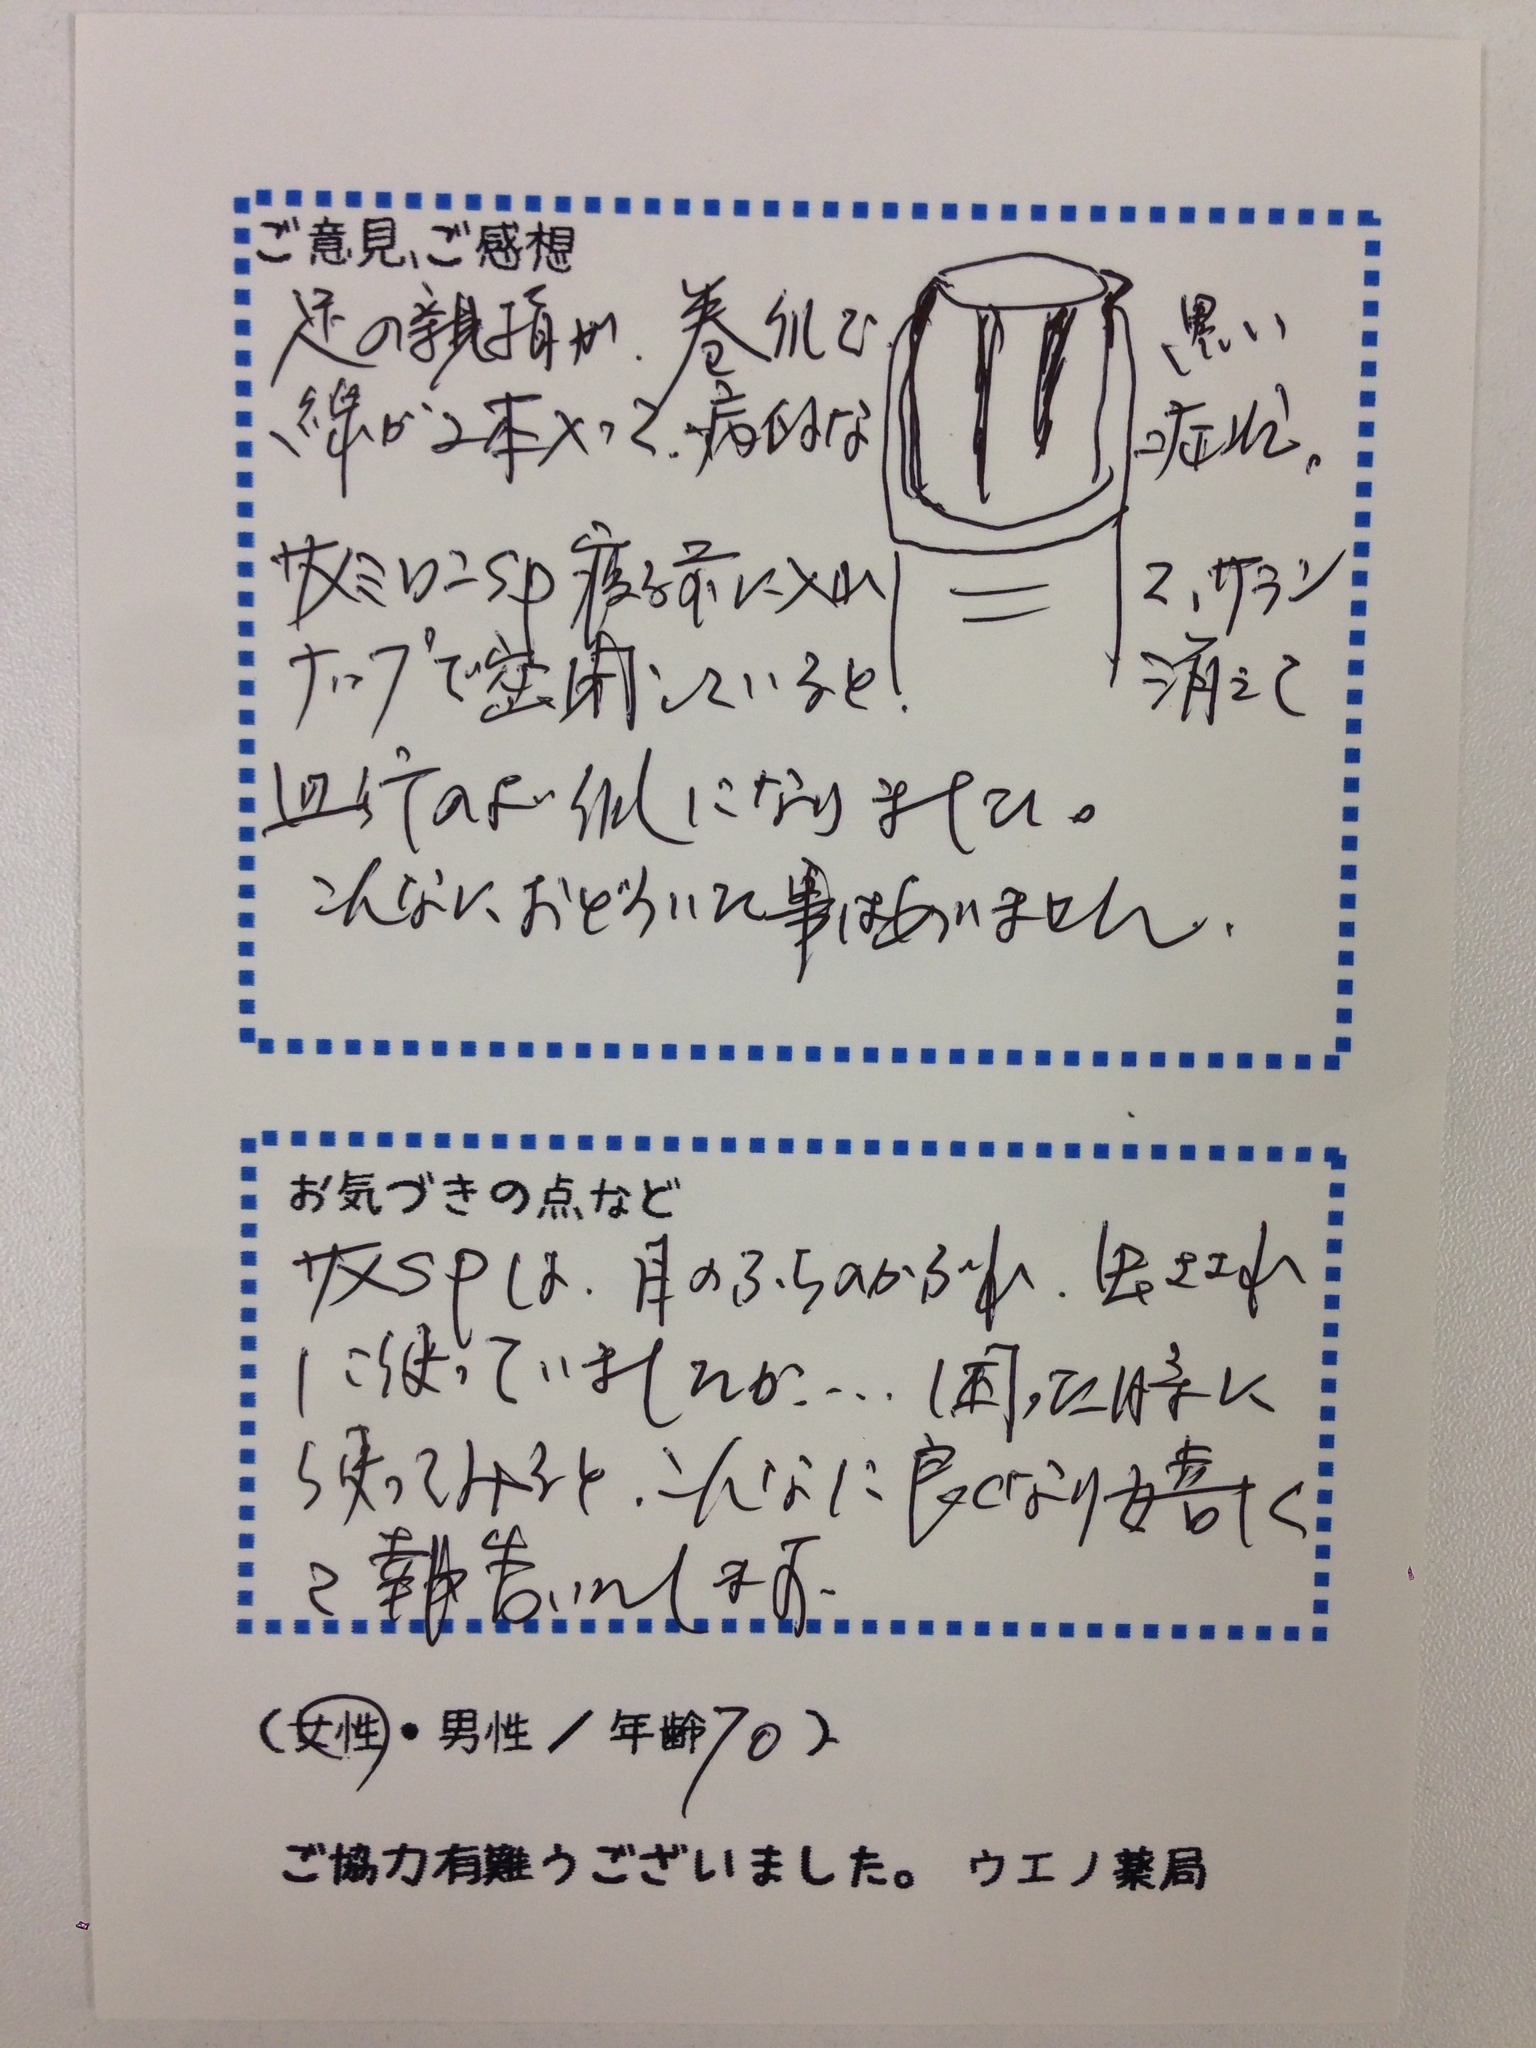 ご意見、ご感想
足の親指が、巻爪で 黒い
線が2本入って、病的な 症状で、
サメミロンSP寝る前に入れ て、サラン
ナップで密閉していると! 消えて
正常のよい爪になりました。
こんなに、おどろいた事はありません。
お気づきの点など
サメSPは、目のふちのかぶれ、虫さされ
に使っていましたが、… 困った時に
使ってみると、こんなに良くなり嬉しく
て報告いたします。
(女性・男性/年齢70)
ご協力有難うございました。 ウエノ薬局